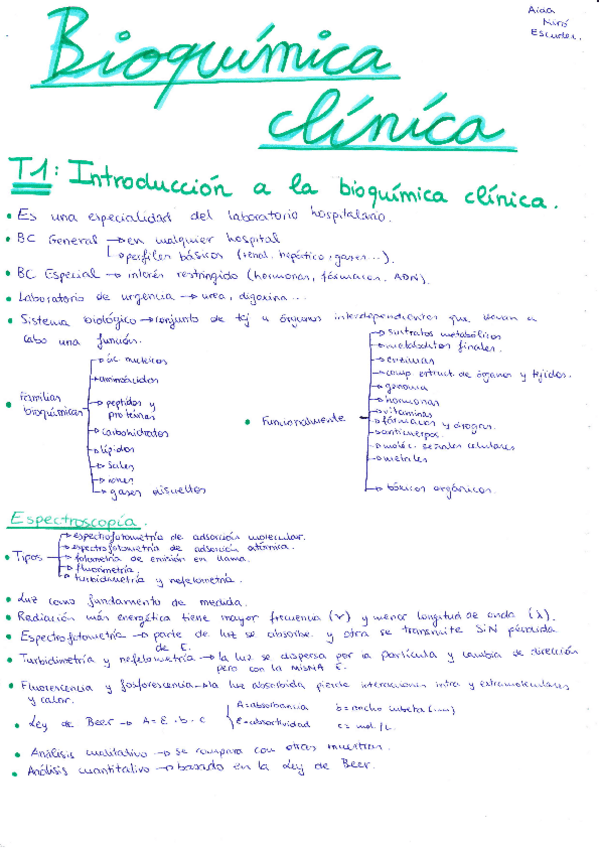 Aida
Miró
Escuder.
Bioquímica
clínica
T1: Introducción a la bioquímica clínica.
• Es una especialidad del laboratorio hospitalario.
• BC General → en cualquier hospital
→ perfiles básicos (renal, hepático, gases...).
• BC Especial → interés restringido (hormonas, fármacos, ADN).
• Laboratorio de urgencia → urea, digoxina...
• Sistema biológico → conjunto de tej u órganos interdependientes que llevan a
cabo una función.
• Familias bioquímicas
→ ác. nucleicos
→ aminoácidos
→ peptidos y proteínas
→ carbohidratos
→ lípidos
→ sales
→ iones
→ gases disueltos
• Funcionalmente
→ sustratos metabólicos
→ metabolitos finales.
→ enzimas
→ comp. estruct. de órganos y tejidos.
→ genoma
→ hormonas
→ vitaminas
→ fármacos y drogas.
→ anticuerpos.
→ moléc. señales celulares
→ metales
→ tóxicos orgánicos.
Espectroscopía.
• Tipos
→ espectrofotometría de adsorción molecular.
→ espectrofotometría de adsorción atómica.
→ fotometría de emisión en llama.
→ fluorimetría.
→ turbidimetría y nefelometría.
• Luz como fundamento de medida.
• Radiación más energética tiene mayor frecuencia (ν) y menor longitud de onda (λ).
• Espectrofotometría → parte de luz se absorbe y otra se transmite SIN pérdida
de E.
• Turbidimetría y nefelometría → la luz se dispersa por la partícula y cambia de dirección
pero con la MISMA E.
• Fluorescencia y fosforescencia → la luz absorbida pierde interacciones intra y extramoleculares
y calor.
• Ley de Beer → A = Ɛ · b · c
A = absorbancia b = ancho cubeta (cm)
Ɛ = absortividad c = mol/L
• Análisis cualitativo → se compara con otras muestras.
• Análisis cuantitativo → basado en la Ley de Beer.